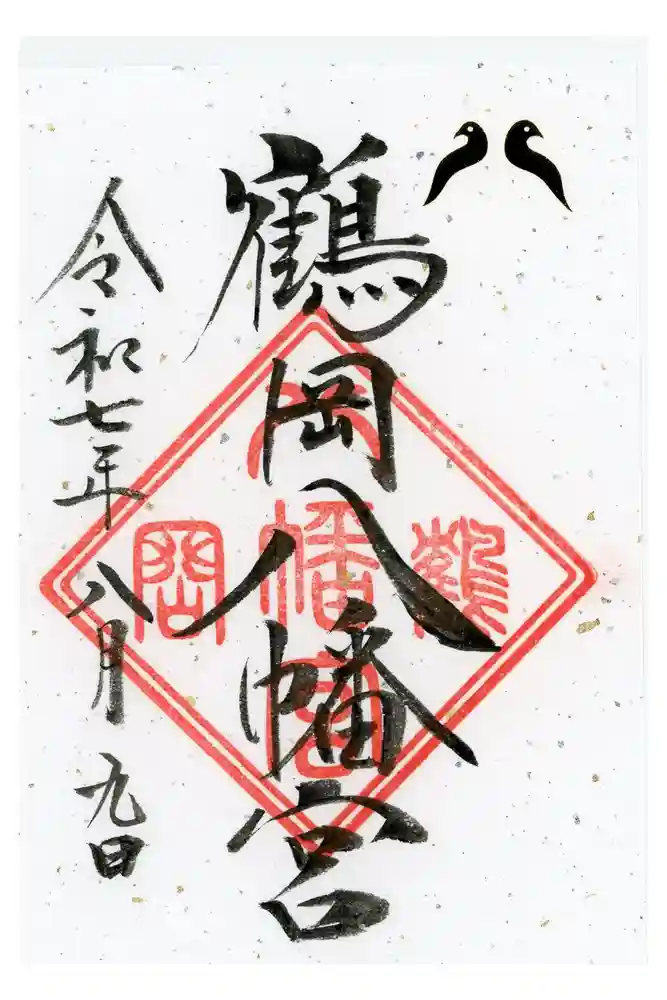 鶴岡八幡宮
鶴
岡
八
幡
宮
令和七年八月九日